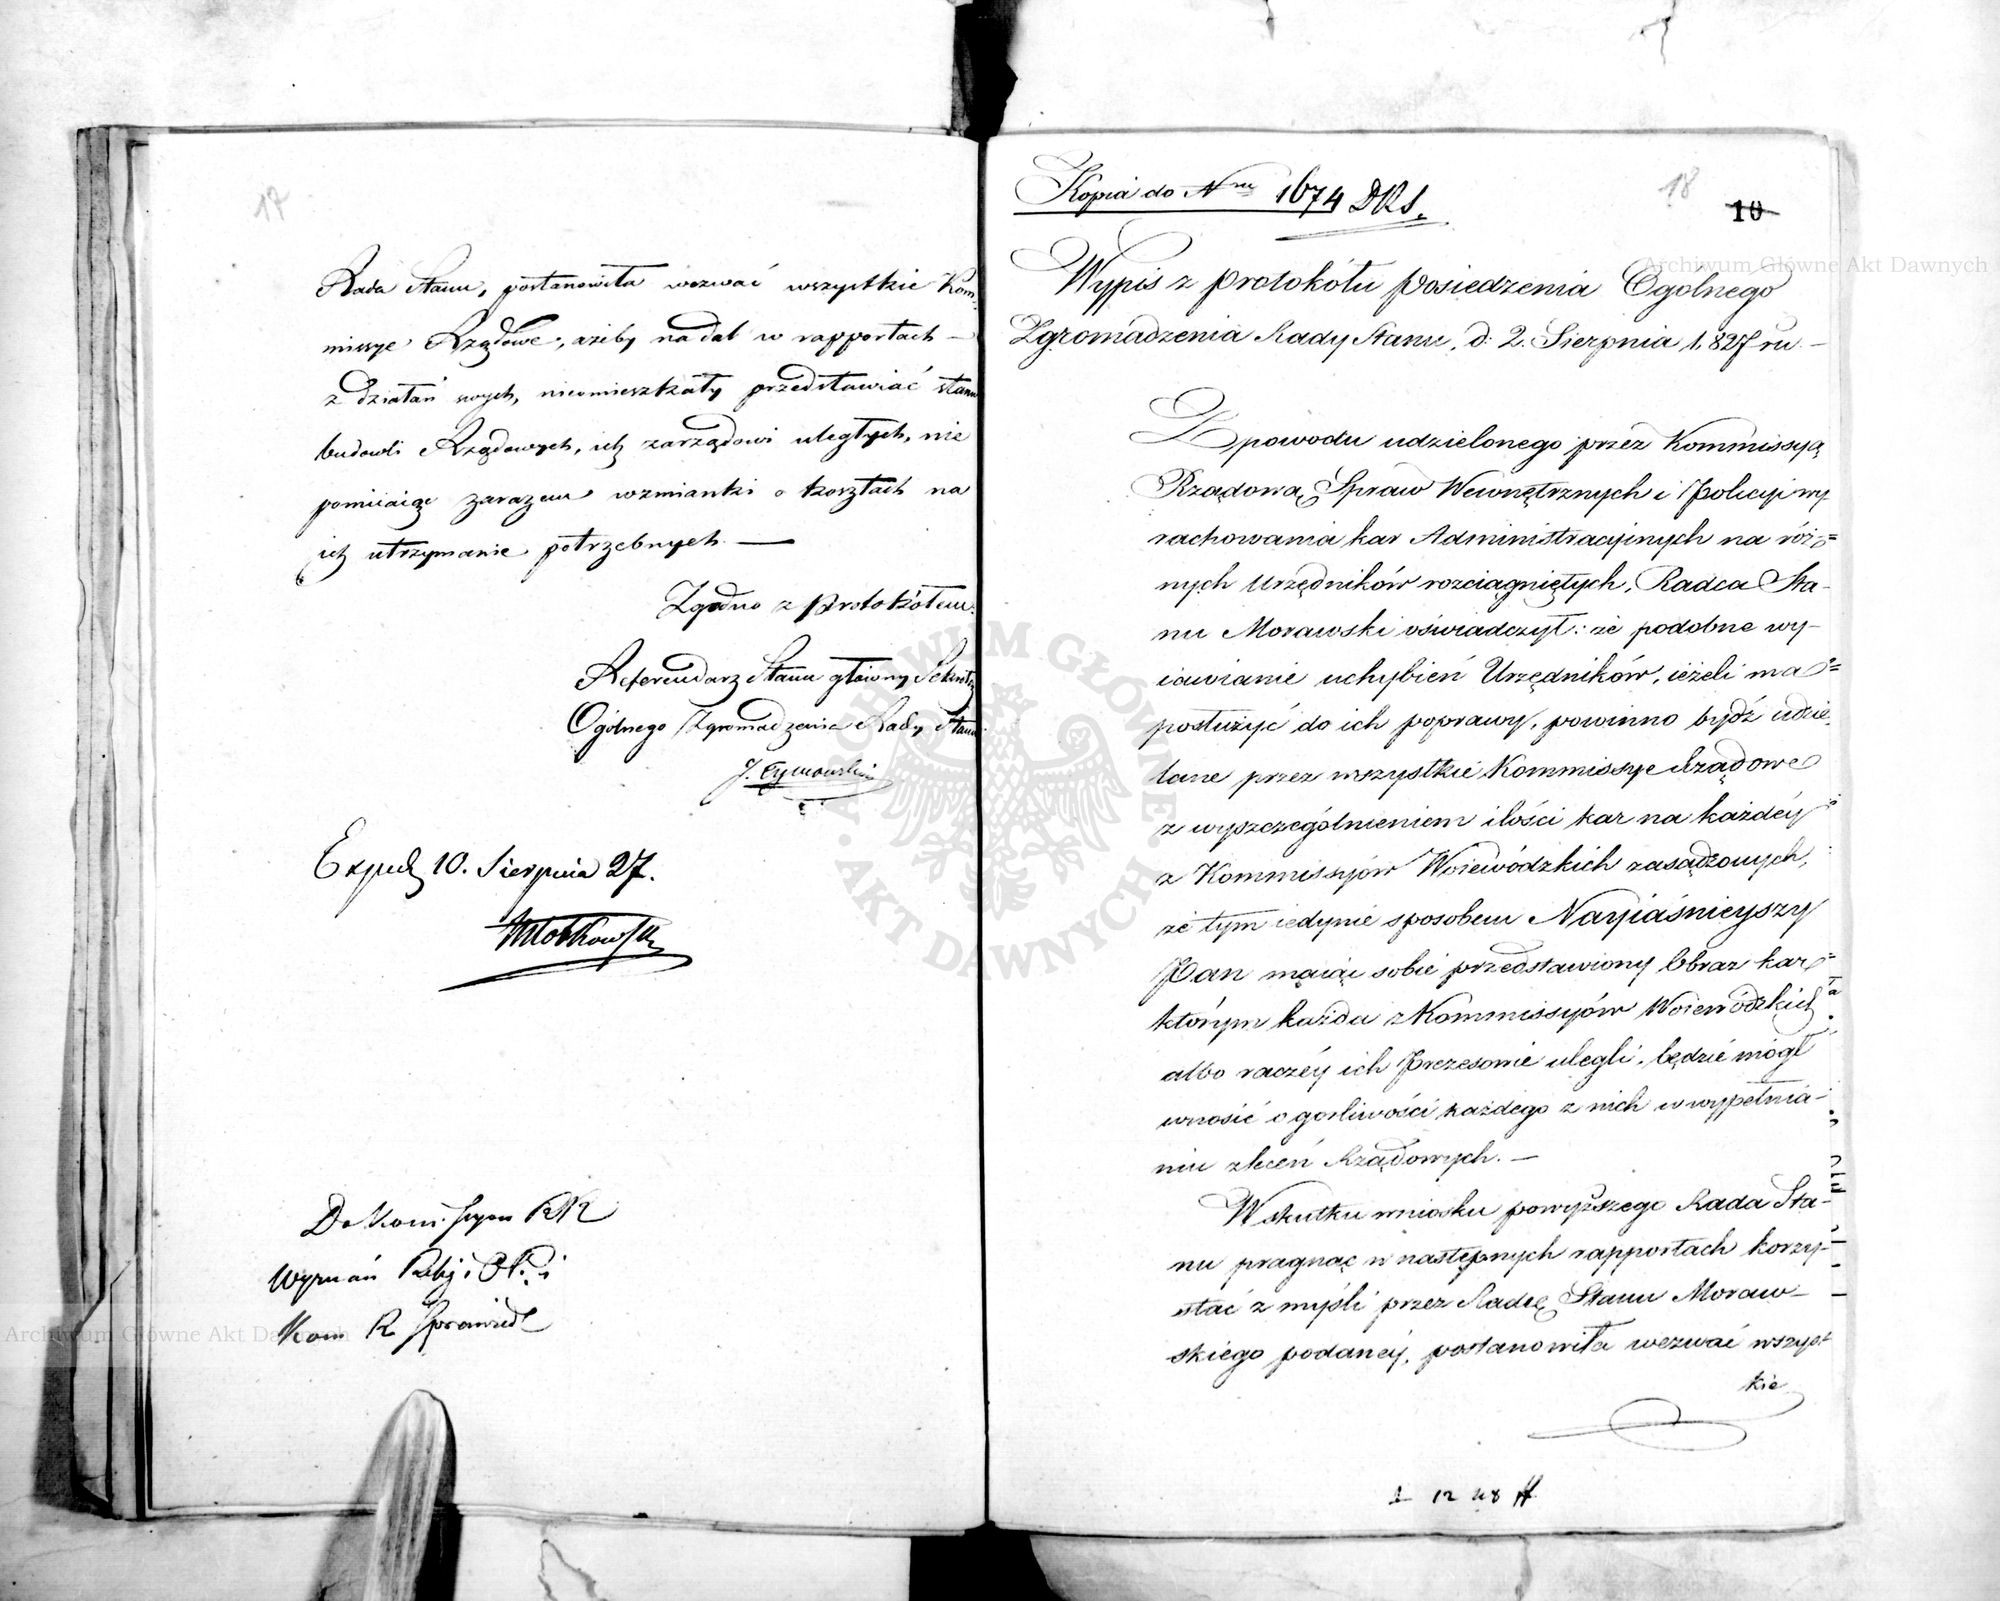 17
Rada Stanu, postanowiła wezwać wszystkie Kom-
missye Rządowe, ażeby nadal w rapportach
z działań swych, nieomieszkały przedstawiać stanu
budowli Rządowych, ich zarządowi uległych, nie
pomijaiąc zarazem wzmianki o kosztach na
ich utrzymanie potrzebnych. —
Zgodno z protokółem.
Referendarz Stanu główny Sekretarz
Ogólnego Zgromadzenia Rady Stanu
Exped 10. Sierpnia 27.
Do Kommissyów
Wyznań
Kom R Sprawiedl
Kopia do Nru 1674 DRS.
18
10
Wypis z protokółu posiedzenia Ogolnego
Zgromadzenia Rady Stanu, d: 2. Sierpnia 1,827 ru. —
Z powodu udzielonego przez Kommissyą
Rządową Spraw Wewnętrznych i Policyi wy-
rachowania kar Administracyinych na róż=
nych Urzędników rozciągniętych, Radca Sta-
nu Morawski oświadczył: że podobne wy-
iawianie uchybień Urzędników, ieżeli ma
posłużyć do ich poprawy, powinno bydź udzie-
lane przez wszystkie Kommissye Rządowe
z wyszczególnieniem ilości kar na każdéy
z Kommissyów Woiewódzkich zasądzonych,
że tym iedynie sposobem Nayiaśnieyszy
Pan maiąc sobie przedstawiony Obraz kar
którym każda z Kommissyów Woiewódzkich
albo raczéy ich Prezesowie ulegli, będzie mógł
wnosić o gorliwości każdego z nich w wypełnia-
niu zleceń Rządowych. —
W skutku wniosku powyższego Rada Sta-
nu pragnąc w następnych rapportach korzy-
stać z myśli przez Radcę Stanu Moraw-
skiego podanéy, postanowiła wezwać wszyst
kie
12 48
Archiwum Główne Akt Dawnych
Archiwum Główne Akt Dawnych
ARCHIWUM GŁÓWNE · AKT DAWNYCH ·